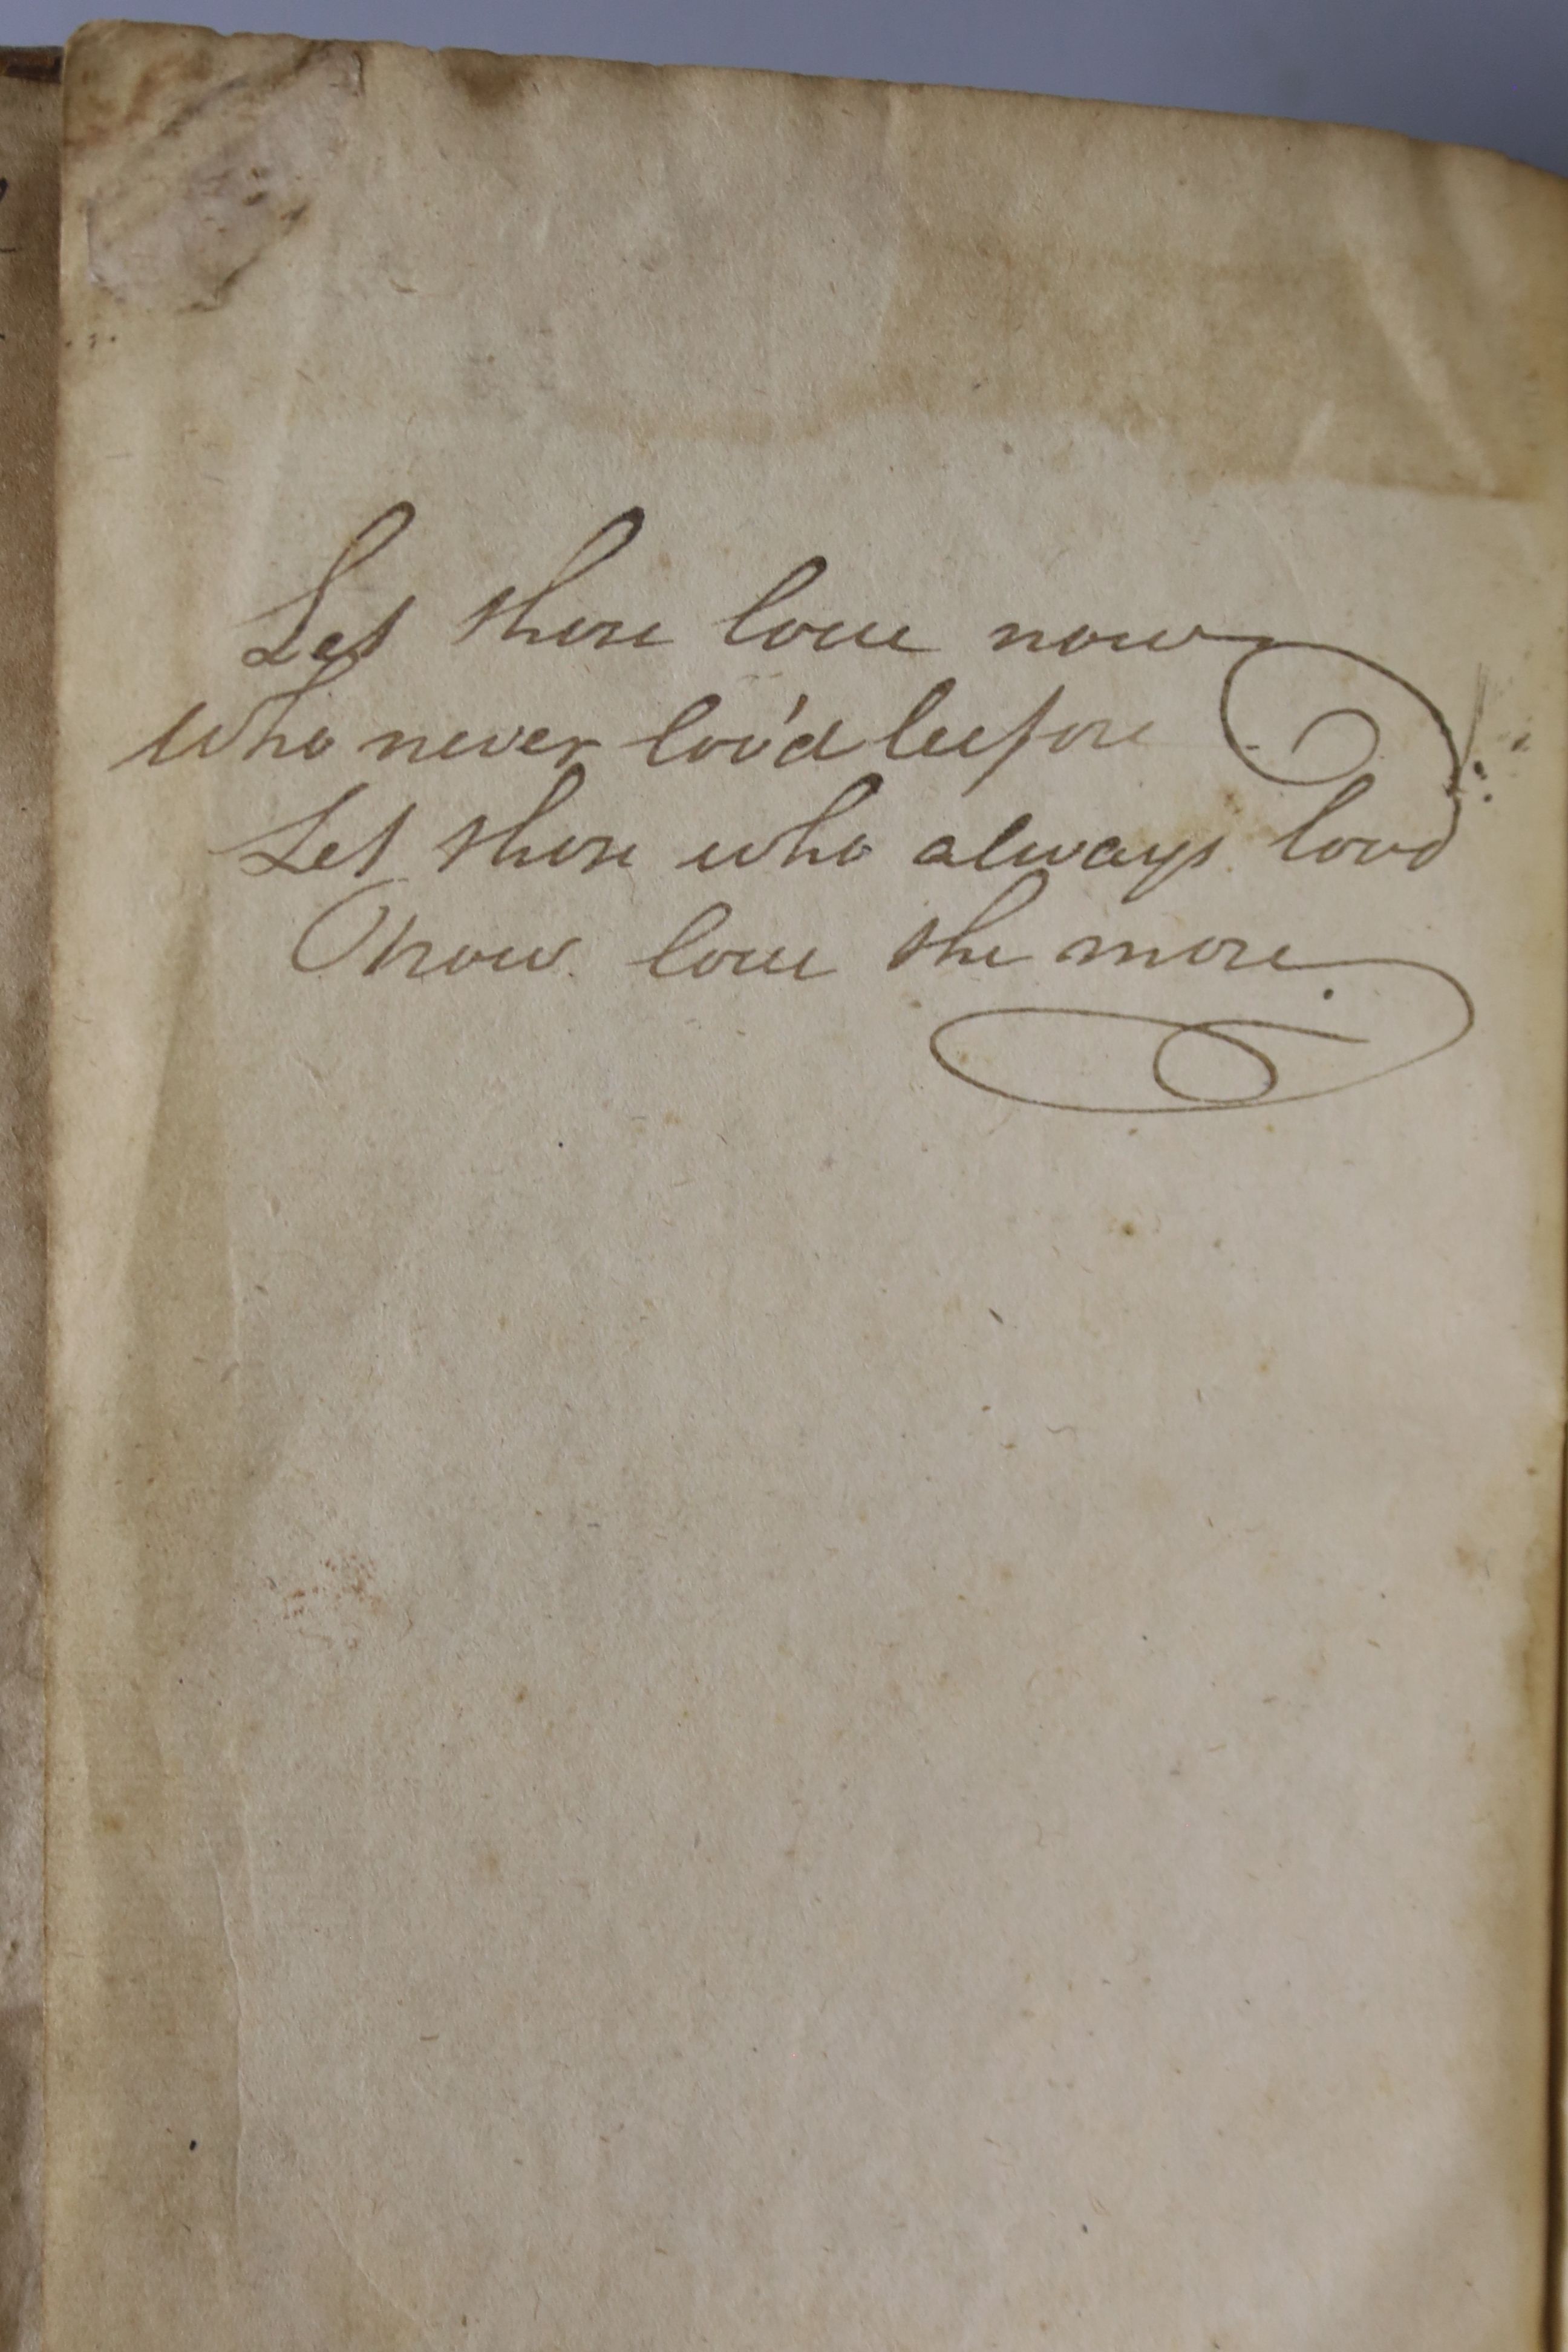 Let those love now
who never lov'd before
Let those who always lovd
Now love the more.